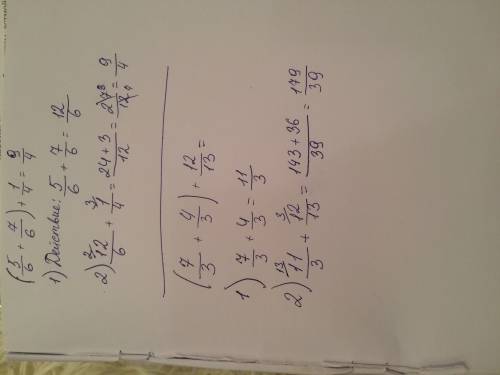 (5/6 + 7/6) + 1/4 = 9/4
1) Действие: 5/6 + 7/6 = 12/6
2) ²12/6 + ³1/4 = 24+3/12 = 27⁹/12₄ = 9/4
(7/3 + 4/3) + 12/13 =
1) 7/3 + 4/3 = 11/3
2) ¹³11/3 + ³12/13 = 143+36/39 = 179/39